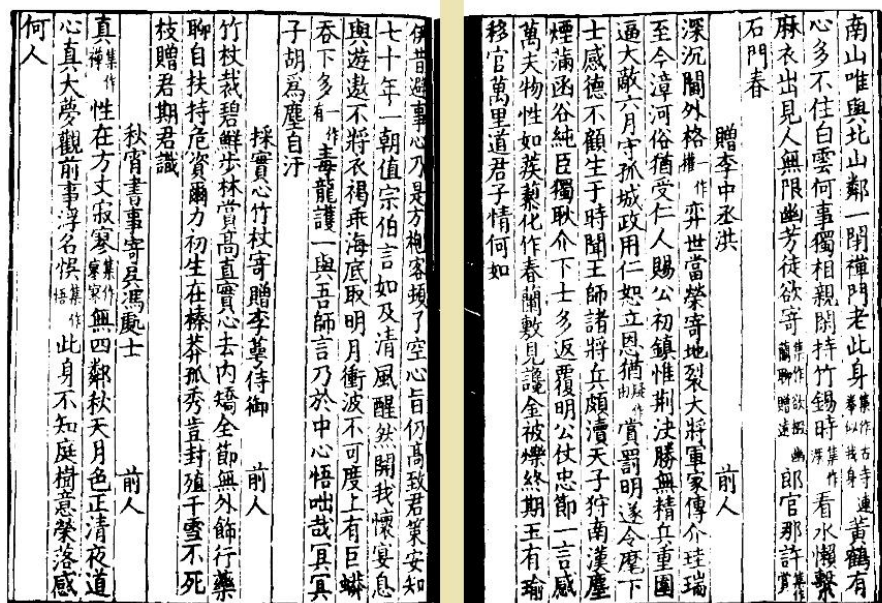 南山唯與北山鄰一閉禪門老此身集作古寺連拳似我身黃鶴有
心多不住白雲何事獨相親閉持竹錫時集作深看水懶繫
麻衣出見人無限幽芳徒欲寄集作欲掇幽蘭聊贈遠郎官那許賞集作
石門春
贈李中丞洪 前人
深沉閫外格一作權弈世當榮寄地裂大將軍家傳介珪瑞
至今漳河俗猶受仁人賜公初鎮惟荆決勝無精兵重圍
逼大敵六月守孤城政用仁恕立恩猶疑作由賞罰明遂令麾下
士感德不顧生于時聞王師諸將兵頗瀆天子狩南漢塵
煙滿函谷純臣獨耿介下士多返覆明公仗忠節一言感
萬夫物性如蒺蔾化作春蘭敷見讒金被爍終期玉有瑜
移官萬里道君子情何如
伊昔避事心乃是方袍客頓了空心旨仍高致君策安知
七十年一朝值宗伯言如及清風醒然開我懷宴息
與遊遨不將衣褐乖海底取明月衝波不可度上有巨蟒
吞下多一作有毒龍護一與吾師言乃於中心悟咄哉冥冥
子胡爲塵自汙
採實心竹杖寄贈李萼侍御 前人
竹杖裁碧鮮步林賞高直實心去內矯全節無外飾行藥
聊自扶持危資爾力初生在榛莽孤秀豈封殖干雪不死
枝贈君期君識
秋宵書事寄吳馮處士 前人
真集作禪性在方丈寂寥集作寂寥無四鄰秋天月色正清夜道
心真大夢觀前事浮名悞集作悟此身不知庭樹意榮落感
何人